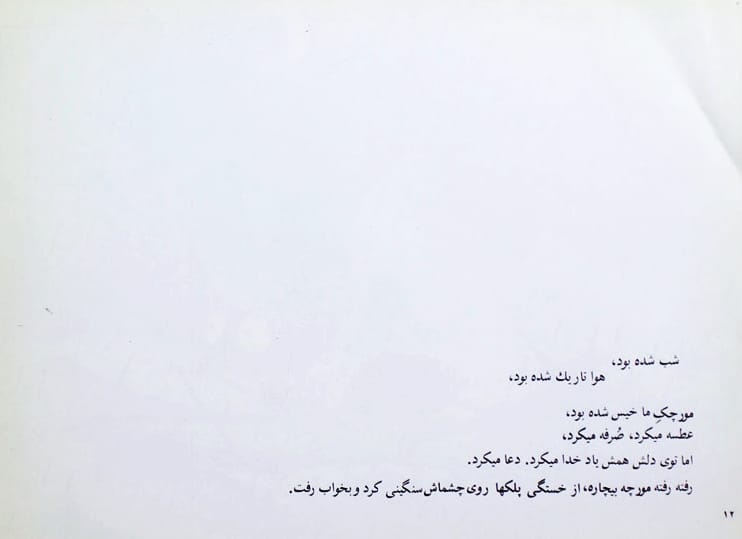 شب شده بود،
هوا تاریك شده بود،
مورچکِ ما خیس شده بود،
عطسه میکرد، صُرفه میکرد،
اما توی دلش همش یاد خدا میکرد. دعا میکرد.
رفته رفته مورچه بیچاره، از خستگی پلکها روی چشماش سنگینی کرد و بخواب رفت.
۱۲